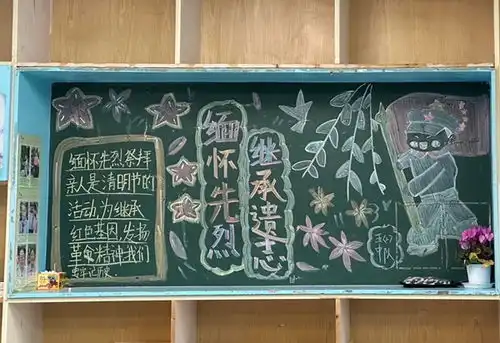 缅怀先烈祭拜
亲人是清明节的
活动,为继承
红色基因,发扬
革命精神我们
牢记历史
缅怀先烈
继承遗志